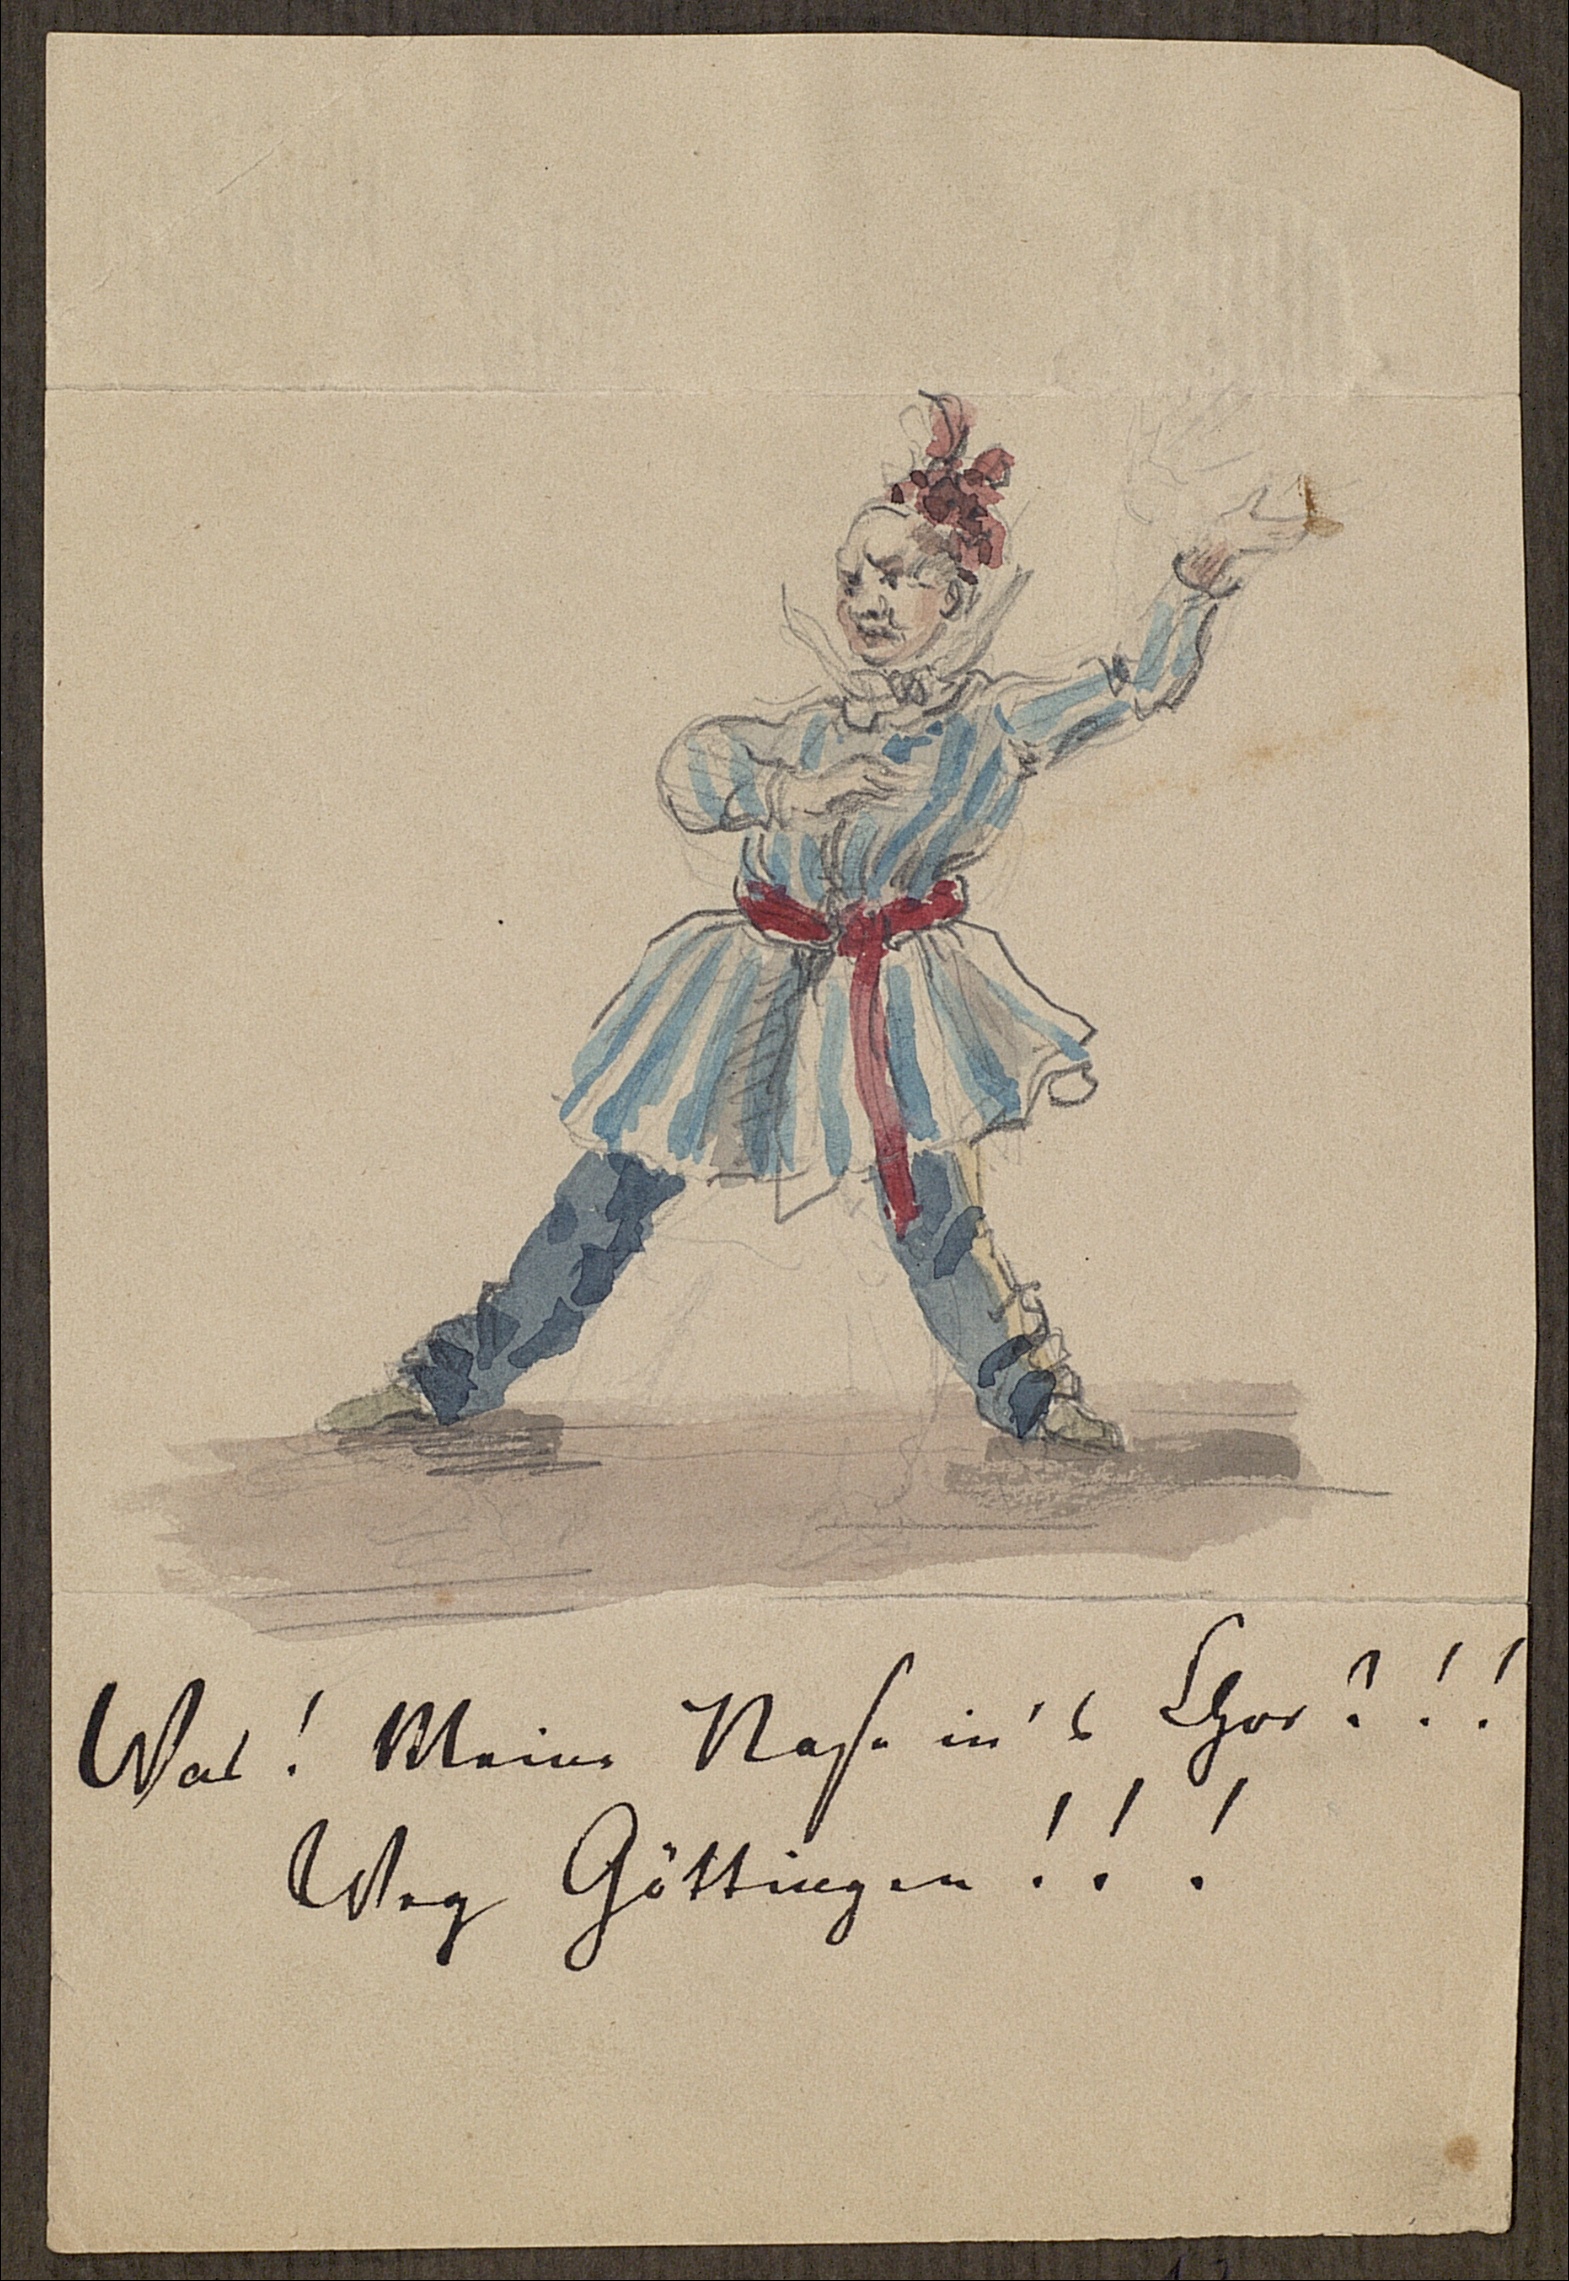 Was! Meine Nase in's Chor?!!
Weg Göttingen!!!